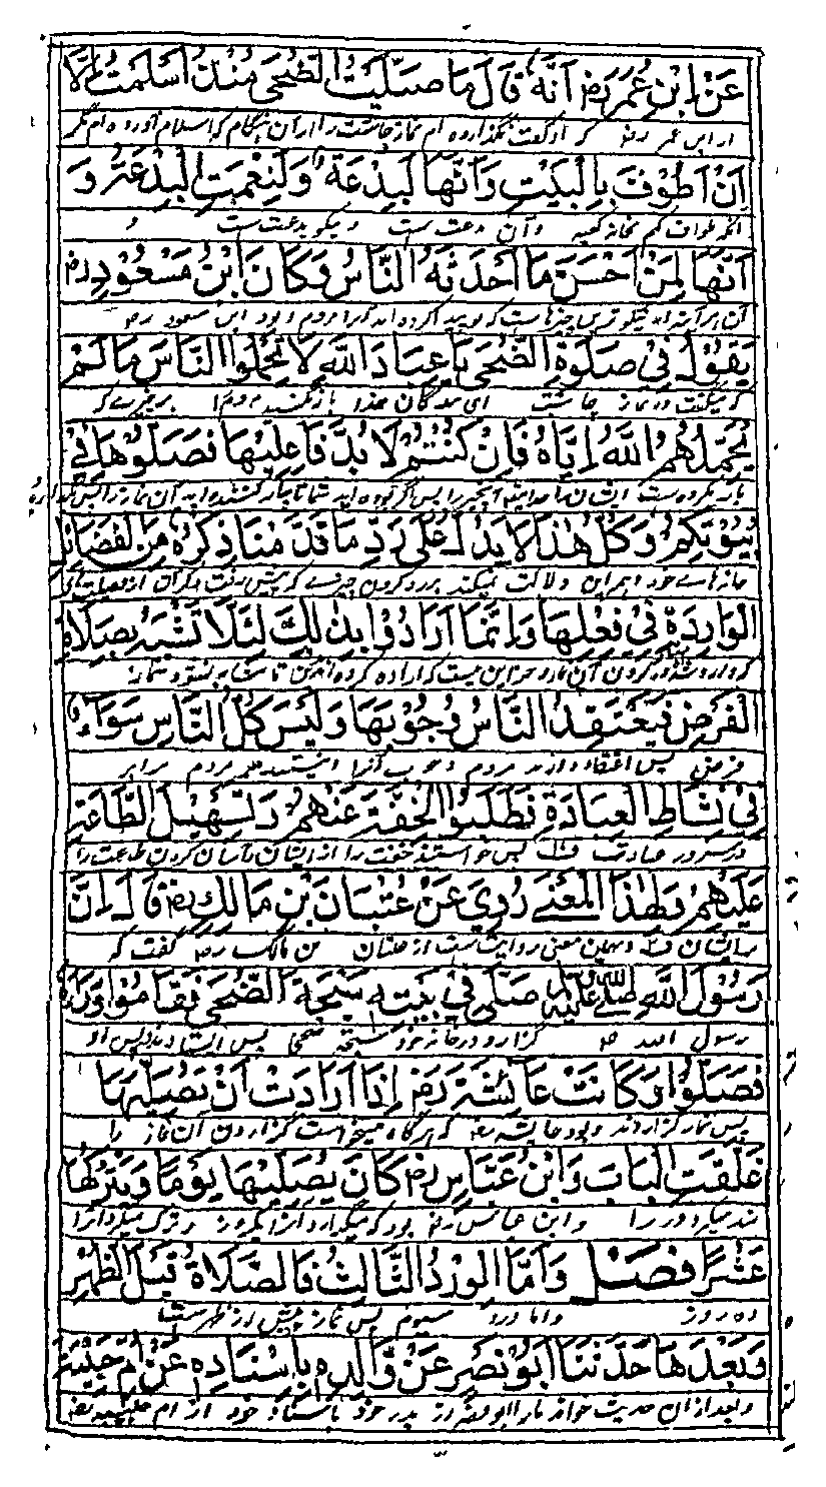 عَنْ اِبْنِ عُمَرَ رض اَنَّهٗ قَالَ مَا صَلَّیْتُ الضُّحٰی مُنْذُ اَسْلَمْتُ اِلَّا
از ابن عمر رض که او گفت نگذارده ام نماز چاشت را از ان هنگام که اسلام آورده ام مگر
اَنْ اَطُوْفَ بِالْبَیْتِ وَاَنَّهَا لَبِدْعَةٌ وَلَنِعْمَتِ الْبِدْعَةُ وَ
انکه طواف کنم بخانه کعبه وآن بدعت ست و نیکو بدعت ست و
اَنَّهَا لِمَنْ اَحْسَنَ مَا اَحْدَثَهُ النَّاسُ وَکَانَ ابْنُ مَسْعُوْدٍ رض
آن هر آئینه از نیکوترین چیزهاست که پیدا کرده اند آنرا مردم و بود ابن مسعود رض
یَقُوْلُ فِیْ صَلٰوةِ الضُّحٰی یَا عِبَادَ اللّٰهِ لَا تُحَمِّلُوا النَّاسَ مَا لَمْ
که میگفت در نماز چاشت ای بندگان خدا بار نکنید مردم را بر چیزے که
یُحَمِّلْهُمُ اللّٰهُ اِیَّاهُ فَاِنْ کُنْتُمْ لَا بُدَّ فَاعِلِیْهَا فَصَلُّوْهَا فِیْ
بار نکرده ست ایشان را خدا پس اگر شما ناچار کننده اید آن نماز را پس
بُیُوْتِکُمْ وَکُلُّ هٰذَا لَا یَدُلُّ عَلٰی رَدِّ مَا قَدَّمْنَا ذِکْرُهٗ مِنَ الْفَضَائِلِ
خانهاے خود و همه این دلالت نمیکند بر رد کردن چیزے که پیش رفت ذکر آن از
الْوَارِدَةِ فِیْ فِعْلِهَا وَاِنَّمَا اَرَادُوْا بِذٰلِكَ لِئَلَّا تَشْبَهَ بِصَلَاةِ
که وارد شده در کردن آن نماز و جز این نیست که اراده کرده اند باین تا مشابه نشود بنماز
الْفَرْضِ فَیَعْتَقِدُ النَّاسُ وُجُوْبَهَا وَلَیْسَ کُلُّ النَّاسِ سَوَاءً
فرض پس اعتقاد دارند مردم وجوب آنرا و نیستند همه مردم برابر
فِیْ نَشَاطِ الْعِبَادَةِ فَطَلَبُوا الْخِفَّةَ عَنْهُمْ وَتَسْهِیْلَ الطَّاعَةِ
در سرور عبادت پس خواستند خفت را از ایشان و آسان کردن طاعت را
عَلَیْهِمْ وَهٰذَا الْمَعْنٰے رُوِیَ عَنْ عُتْبَانَ بْنِ مَالِكٍ رض قَالَ اِنَّ
بر ایشان و همین معنی روایت ست از عتبان بن مالک رض گفت که
رَسُوْلَ اللّٰهِ صَلَّی اللّٰهُ عَلَیْهِ صَلّٰی فِیْ بَیْتِهٖ سُبْحَةَ الضُّحٰی فَقَامُوْا وَرَاءَهٗ
رسول الله ص گزارد در خانه خود سبحه ضحی پس ایستادند پس او
فَصَلَّوْا وَکَانَتْ عَائِشَةُ رَض اِذَا اَرَادَتْ اَنْ یُصَلِّیَهَا
پس نماز گزاردند و بود عایشه رض که هرگاه میخواست گزاردن آن نماز را
غَلَّقَتِ الْبَابَ وَابْنُ عَبَّاسٍ رض کَانَ یُصَلِّیْهَا یَوْمًا وَیَتْرُکُهَا
بند میکرد در را وابن عباس رض بود که میگزارد آنرا یکروز و ترک میکرد آنرا
عَشْرًا فَصْلٌ وَاَمَّا الْوِرْدُ الثَّالِثُ فَالصَّلَاةُ قَبْلَ الظُّهْرِ
ده روز واما ورد سیوم پس نماز پیش از ظهر ست
وَبَعْدَهَا حَدَّثَنَا اَبُوْ نَصْرٍ عَنْ وَالِدِهٖ بِاِسْنَادِهٖ عَنْ اُمِّ حَبِیْبَةَ
وبعد از ان حدیث خواند مارا ابو نصر از پدر خود باسناد خود از ام حبیبه رض